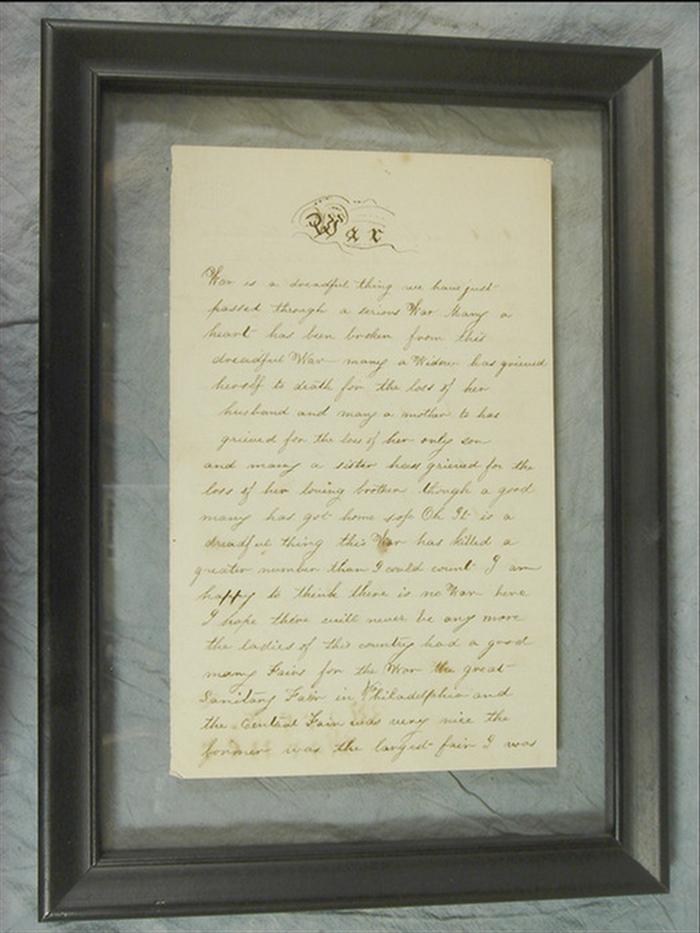 War
War is a dreadful thing we have just
passed through a serious War Many a
heart has been broken from this
dreadful War many a Widow has grieved
herself to death for the loss of her
husband and many a mother to has
grieved for the loss of her only son
and many a sister has grieved for the
loss of her loving brother though a good
many has got home safe Oh It is a
dreadful thing this War has killed a
greater number than I could count I am
happy to think there is no War here
I hope there will never be any more
the ladies of this country had a good
many Fairs for the War the great
Sanitary Fair in Philadelphia and
the Central Fair was very nice the
former was the largest fair I was